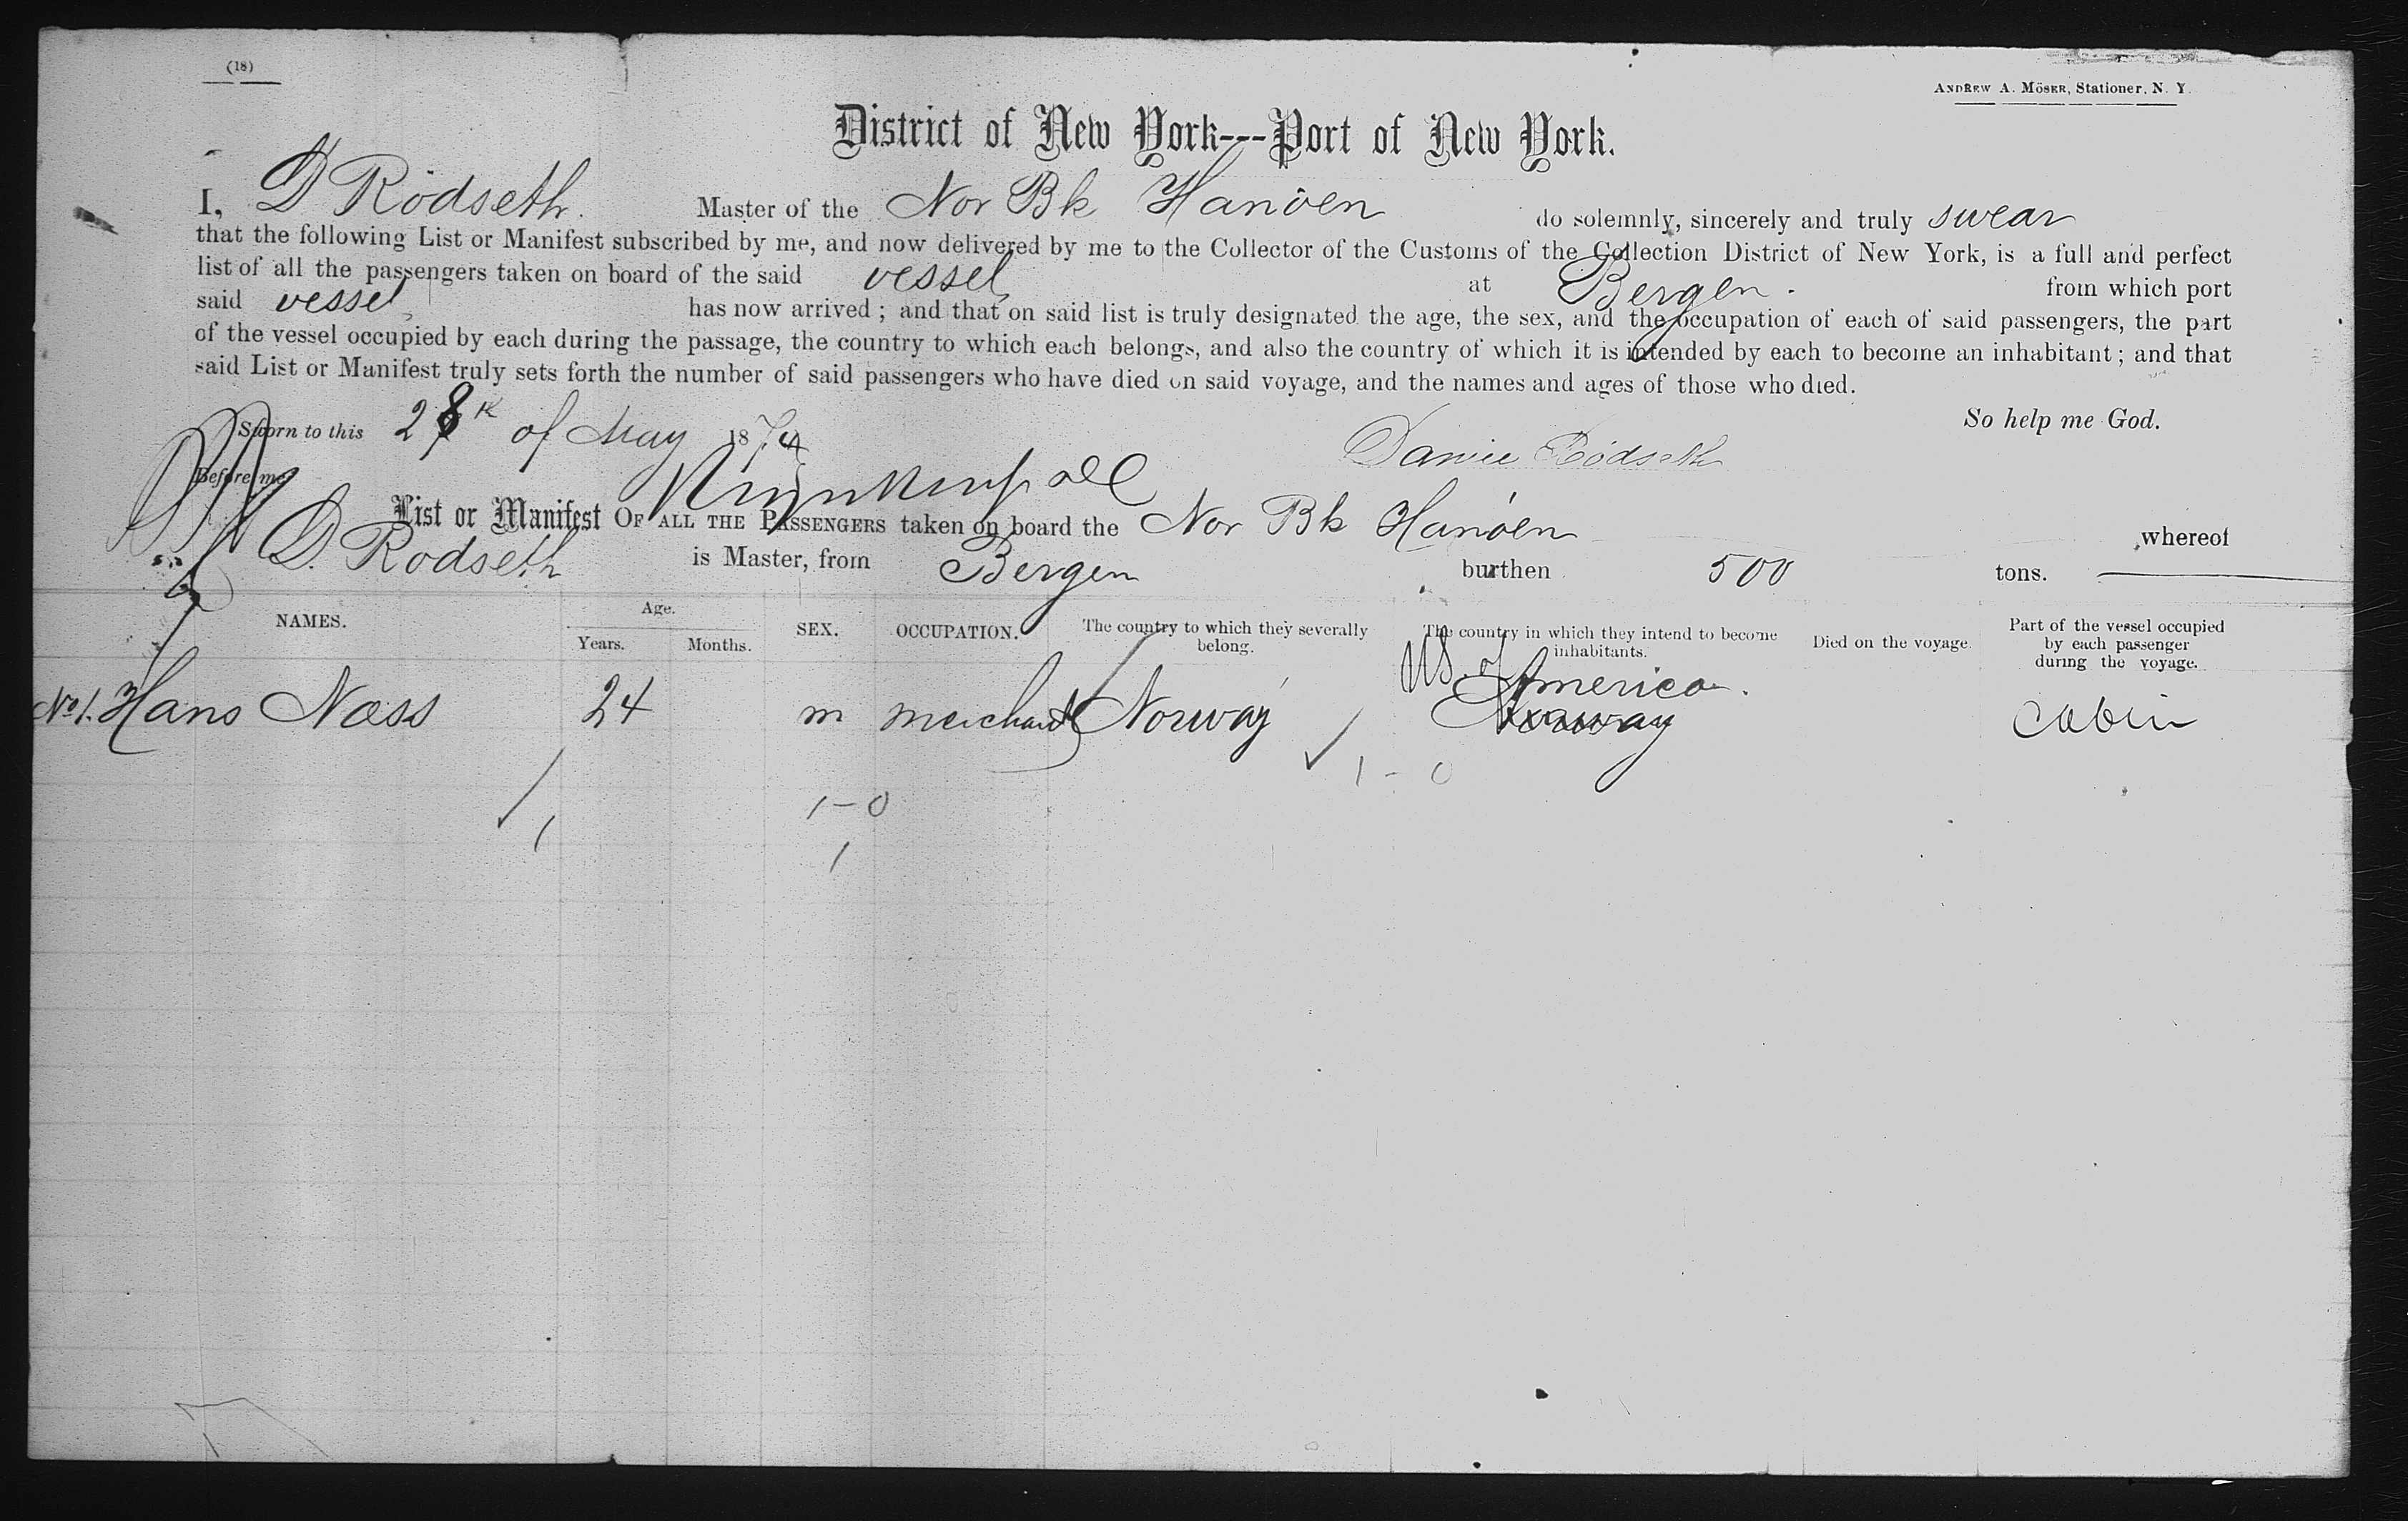 (18)
ANDREW A. MÖSER, Stationer, N. Y.
District of New York---Port of New York.
I, D Rödseth. Master of the Nor Bk Hanöen do solemnly, sincerely and truly swear
that the following List or Manifest subscribed by me, and now delivered by me to the Collector of the Customs of the Collection District of New York, is a full and perfect
list of all the passengers taken on board of the said vessel at Bergen. from which port
said vessel has now arrived; and that on said list is truly designated the age, the sex, and the occupation of each of said passengers, the part
of the vessel occupied by each during the passage, the country to which each belongs, and also the country of which it is intended by each to become an inhabitant; and that
said List or Manifest truly sets forth the number of said passengers who have died on said voyage, and the names and ages of those who died.
So help me God.
Sworn to this 28 of May 1874
Rödseth
Before me
List or Manifest OF ALL THE PASSENGERS taken on board the Nor Bk Hanöen whereof
D. Rodseth is Master, from Bergen burthen 500 tons.
NAMES. Age. Years. Months. SEX. OCCUPATION. The country to which they severally belong. The country in which they intend to become inhabitants. Died on the voyage. Part of the vessel occupied by each passenger during the voyage.
US. of
America.
No 1. Hans Næss 24 m merchant Norway Norway Cabin
1 - 0
1 - 0
1
1